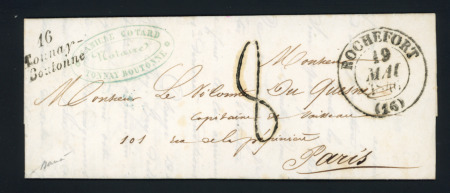 16
Tonnay-
Boutonne
COTARD
Notaire
TONNAY BOUTONNE
ROCHEFORT
19
MAI
(16)
8
Monsieur
Monsieur Le Vicomte Du Quesne
Capitaine de Vaisseau
101 rue de la pépinière
Paris